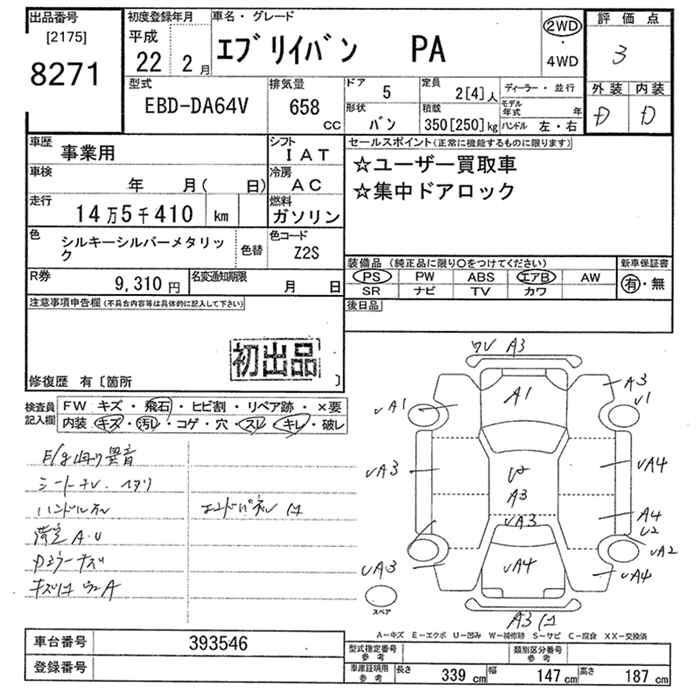 出品番号
[2175]
8271
初度登録年月
平成
22 年 2 月
車名・グレード
エブリイバン PA
2WD
・
4WD
評価点
3
外装 内装
D D
型式
EBD-DA64V
排気量
658 cc
ドア 5
形状 バン
定員 2[4]人
積載 350[250]kg
ディーラー・並行
モデル年式 年
ハンドル 左・右
車歴 事業用
シフト IAT
車検 年 月( 日)
冷房 AC
走行 14万5千410 km
燃料 ガソリン
色 シルキーシルバーメタリック
色替
色コード Z2S
R券 9,310円
名変通知期限 月 日
セールスポイント(正常に機能するものに限ります)
☆ユーザー買取車
☆集中ドアロック
装備品(純正品に限り〇をつけてください)
PS PW ABS エアB AW
SR ナビ TV カワ
新車保証書
有・無
後日品
注意事項申告欄(不具合内容等は具体的に記入して下さい)
初出品
修復歴 有〔箇所 〕
検査員記入欄
FW キズ・飛石・ヒビ割・リペア跡・×要
内装 キズ・汚レ・コゲ・穴・スレ・キレ・破レ
異音
ハンドル
A.U
キズ
A
エンドパネル
ワU A3
A1
A3
U1
UA1
UA3
UA4
A3
UA3
A4
U2
UA2
UA3
UA4
UA4
A3
スペア
A-キズ E-エクボ U-凹み W-補修跡 S-サビ C-腐食 XX-交換済
車台番号 393546
登録番号
型式指定番号 参考
類別区分番号 参考
車庫証明用 参考
長さ 339 cm 幅 147 cm 高さ 187 cm